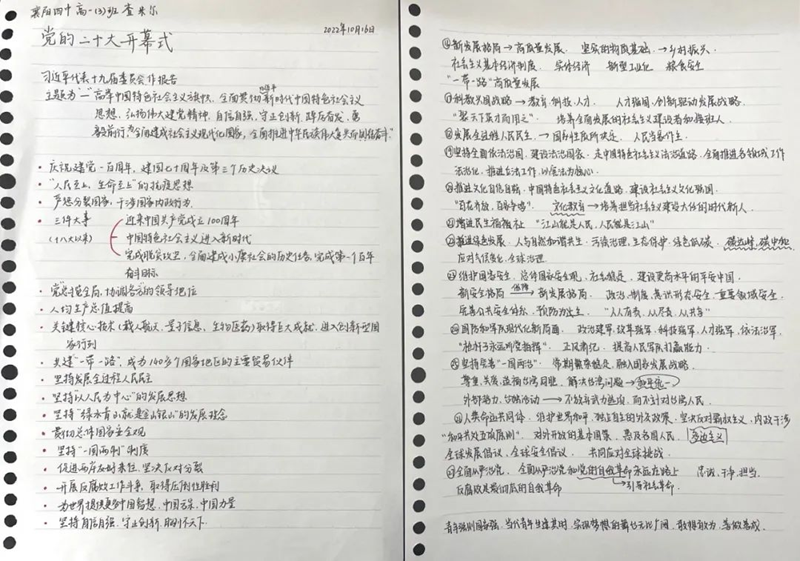 襄阳四中高一(3)班 查米尔
2022年10月16日
党的二十大开幕式
习近平代表十九届委员会作报告
主题为“高举中国特色社会主义旗帜,全面贯彻新时代中国特色社会主义
思想,弘扬伟大建党精神,自信自强、守正创新,踔厉奋发、勇
毅前行,为全面建设社会主义现代化国家,全面推进中华民族伟大复兴而团结奋斗”
• 庆祝建党一百周年,建国七十周年及第三个历史决议
• “人民至上,生命至上”的抗疫思想
• 严惩分裂国家,干涉国家内政行为
• 三件大事 迎来中国共产党成立100周年
(十八大以来) 中国特色社会主义进入新时代
完成脱贫攻坚,全面建成小康社会的历史任务,完成第一个百年
奋斗目标
• 党总揽全局,协调各方的领导地位
• 人均生产总值提高
• 关键核心技术(载人航天,量子信息,生物医药)取得巨大成就,进入创新型国
家行列
• 共建“一带一路”,成为140多个国家地区的主要贸易伙伴
• 坚持发展全过程人民民主
• 坚持“以人民为中心”的发展思想
• 坚持“绿水青山就是金山银山”的发展理念
• 贯彻总体国家安全观
• 坚持“一国两制”制度
• 促进两岸友好来往,坚决反对分裂
• 开展反腐败工作斗争,取得压倒性胜利
• 为世界提供更多中国智慧,中国方案,中国力量
• 坚持自信自强,守正创新,胸怀天下
新发展格局→高质量发展 坚实的物质基础→乡村振兴
社会主义基本经济制度 实体经济 新型工业化 粮食安全
“一带一路”高质量发展
科教兴国战略→教育、科技、人才 人才强国、创新驱动发展战略
“聚天下英才而用之” 培养全面发展的社会主义建设者和接班人
发展全过程人民民主→国家性质所决定 人民当家作主
坚持全面依法治国,建设法治国家,走中国特色社会主义法治道路,全面推进各方面工作
法治化,推进立法工作,以宪法为核心
推进文化自信自强,中国特色社会主义文化道路,建设社会主义文化强国
“百花齐放,百家争鸣” 文化教育→培养担当社会主义建设大任的时代新人
增进民生福祉 “江山就是人民,人民就是江山”
推进绿色发展 人与自然和谐共生,污染治理,生态保护,绿色低碳,碳达峰,碳中和
应对气候变化,全球治理
维护国家安全,总体国家安全观,社会稳定,建设更高水平的平安中国
新安全格局 保障→新发展格局 政治、制度、意识形态安全、重要领域安全
完善公共安全体系,预防为主 “人人有责、人人尽责、人人共享”
国防和军队现代化新局面 政治建军,改革强军,科技强军,人才强军,依法治军
正风肃纪 提高人民军队打赢能力
坚持完善“一国两制” 长期繁荣稳定,融入国家发展战略
尊重,关爱,造福台湾同胞 解决台湾问题→和平统一
外部势力,台独活动→不放弃武力统一,而不针对台湾人民
人类命运共同体 维护世界和平,独立自主的外交政策,坚决反对霸权主义,内政干涉
“和平共处五项原则” 对外开放的基本国策,惠及各国人民
全球发展倡议,全球安全倡议 共同应对全球挑战
全面从严治党 全面从严治党和党的自我革命永远在路上 忠诚,干净,担当
反腐败是最彻底的自我革命 →引导社会革命
青年强则国家强,当代青年生逢其时,实现梦想的舞台无比广阔,敢想敢为,善作善成。